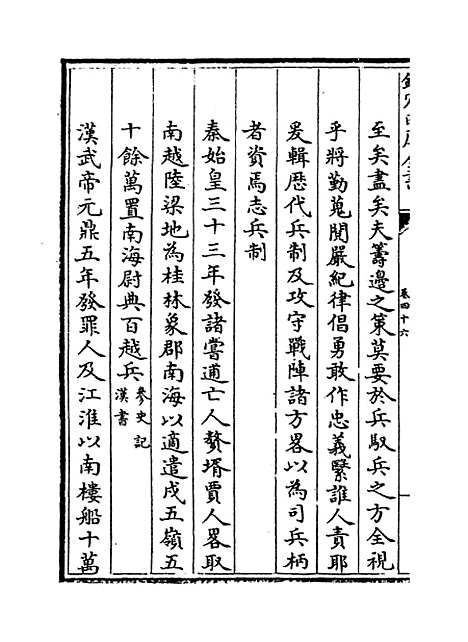 欽定四庫全書
卷四十六
至矣盡矣夫籌邊之策莫要於兵馭兵之方全視
乎將勤蒐閱嚴紀律倡勇敢作忠義緊誰人責耶
爰輯歴代兵制及攻守戰陣諸方畧以為司兵柄
者資焉志兵制
秦始皇三十三年發諸嘗逋亡人贅壻賈人畧取
南越陸梁地為桂林象郡南海以適遣戍五嶺五
十餘萬置南海尉典百越兵參史記漢書
漢武帝元鼎五年發罪人及江淮以南樓船十萬